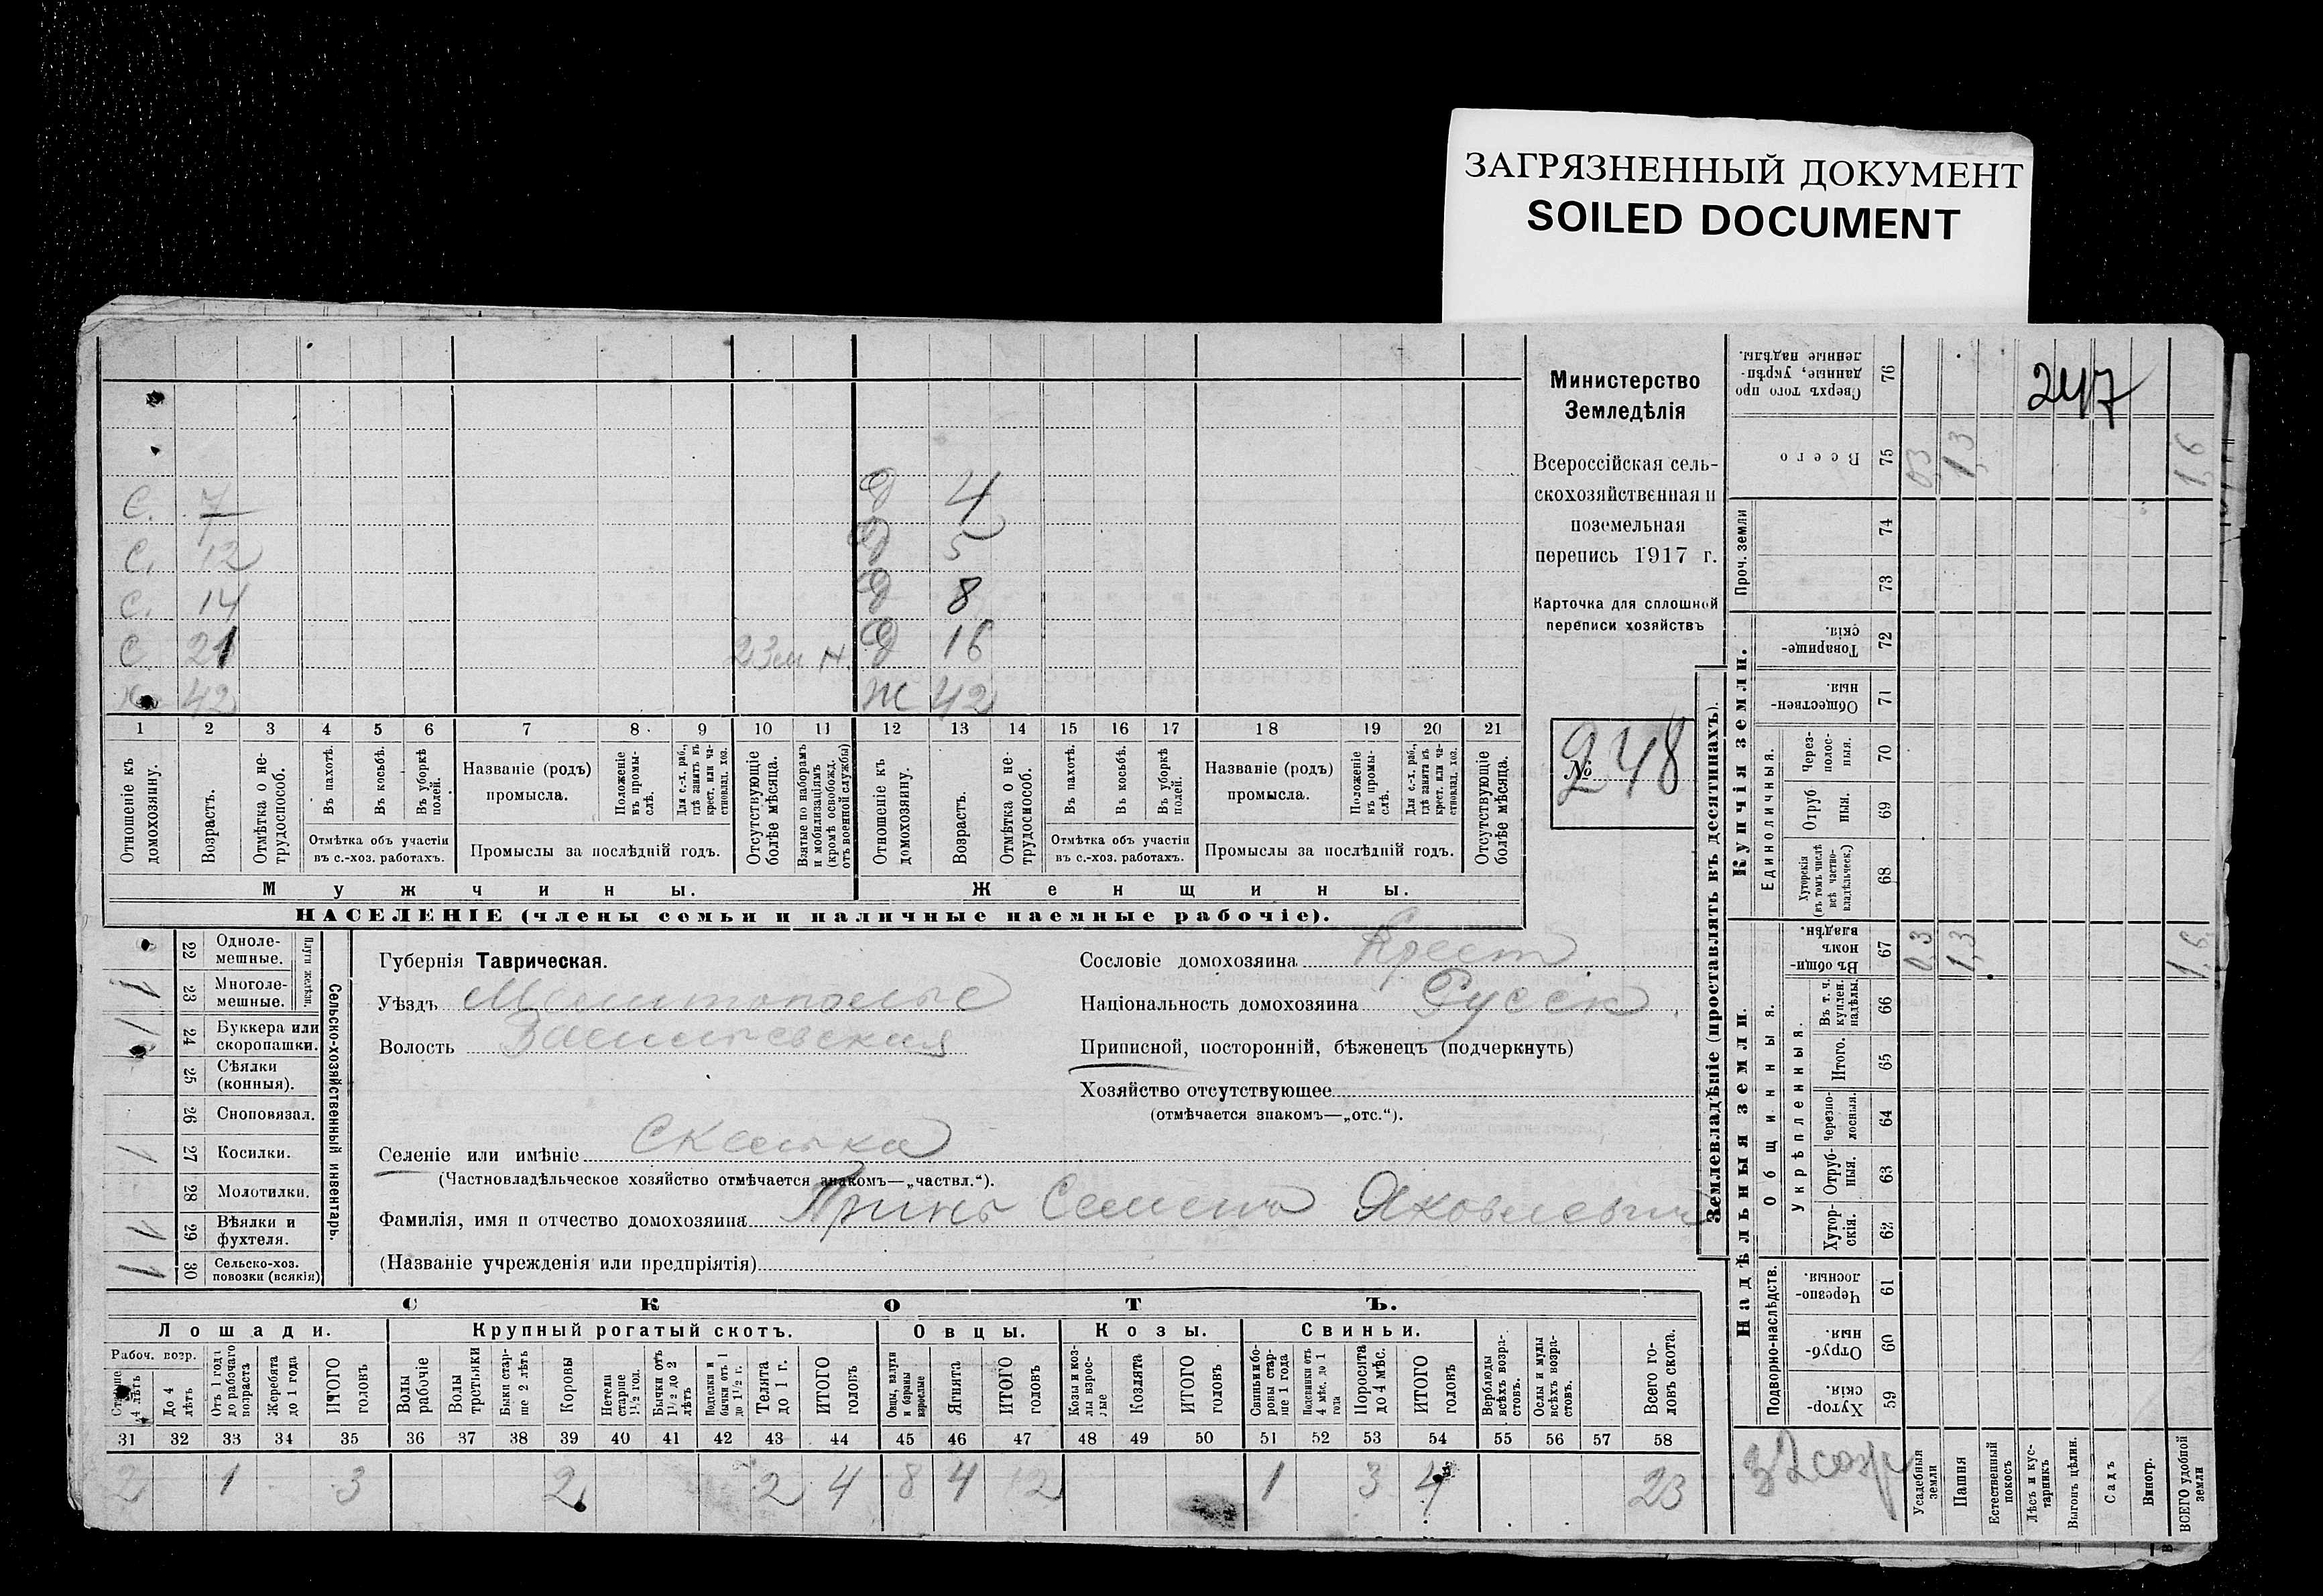 ЗАГРЯЗНЕННЫЙ ДОКУМЕНТ
SOILED DOCUMENT
247
Министерство
Земледѣлія
Всероссійская сель-
скохозяйственная и
поземельная
перепись 1917 г.
Карточка для сплошной
переписи хозяйствъ
№ 248
С. 7
С. 12
С. 14
С 21
42
Д 4
Д 5
Д 8
Д 16
Ж 42
1 2 3 4 5 6 7 8 9 10 11 12 13 14 15 16 17 18 19 20 21
Отношеніе къ домохозяину.
Возрастъ.
Отмѣтка о не-трудоспособ.
Въ пахотѣ.
Въ косьбѣ.
Въ уборкѣ полей.
Отмѣтка объ участіи
въ с.-хоз. работахъ.
Названіе (родъ)
промысла.
Положеніе въ промы-слѣ.
Для с.-х. раб., гдѣ занятъ въ крест. или ча-стновлад. хоз.
Промыслы за послѣдній годъ.
Отсутствующіе болѣе мѣсяца.
Взятые по наборамъ и мобилизаціямъ (кромѣ освобожд. отъ военной службы)
Отношеніе къ домохозяину.
Возрастъ.
Отмѣтка о не-трудоспособ.
Въ пахотѣ.
Въ косьбѣ.
Въ уборкѣ полей.
Отмѣтка объ участіи
въ с.-хоз. работахъ.
Названіе (родъ)
промысла.
Положеніе въ промы-слѣ.
Для с.-х. раб., гдѣ занята въ крест. или ча-стновлад. хоз.
Промыслы за послѣдній годъ.
Отсутствующіе болѣе мѣсяца.
Мужчины.
Женщины.
НАСЕЛЕНІЕ (члены семьи и наличные наемные рабочіе).
Сельско-хозяйственный инвентарь.
22 Одноле-мешные.
1 23 Многоле-мешные.
1 24 Буккера или скоропашки.
25 Сѣялки (конныя).
26 Сноповязал.
1 27 Косилки.
28 Молотилки.
1 29 Вѣялки и фухтеля.
1 30 Сельско-хоз. повозки (всякія)
Губернія Таврическая.
Уѣздъ Мелитопольс
Волость Васильевская
Селеніе или имѣніе Скелька
(Частновладѣльческое хозяйство отмѣчается знакомъ—„частвл.“).
Фамилія, имя и отчество домохозяина Принь Семенъ Яковлевич
(Названіе учрежденія или предпріятія)
Сословіе домохозяина Крест
Національность домохозяина Русск.
Приписной, посторонній, бѣженецъ (подчеркнуть)
Хозяйство отсутствующее
(отмѣчается знакомъ—„отс.“).
СКОТЪ.
Лошади.
Крупный рогатый скотъ.
Овцы.
Козы.
Свиньи.
Рабоч. возр.
Старше 4 лѣтъ
До 4 лѣтъ
Отъ 1 года до рабочаго возраста
Жеребята до 1 года
ИТОГО головъ
Волы рабочіе
Волы третьяки
Быки стар-ше 2 лѣтъ
Коровы
Нетели старше 1½ год.
Бычки отъ 1½ до 2 лѣтъ
Подтелки и бычки отъ 1 до 1½ г.
Телята до 1 г.
ИТОГО головъ
Овцы, валухи и бараны взрослые
Ягнята
ИТОГО головъ
Козы и коз-лы взрос-лые
Козлята
ИТОГО головъ
Свиньи и бо-ровы стар-ше 1 года
Подсвинки отъ 4 мѣс. до 1 года
Поросята до 4 мѣс.
ИТОГО головъ
Верблюды всѣхъ возра-стовъ.
Ослы и мулы всѣхъ возра-стовъ.
Всего го-ловъ скота.
31 32 33 34 35 36 37 38 39 40 41 42 43 44 45 46 47 48 49 50 51 52 53 54 55 56 57 58
2 1 3 2 2 4 8 4 12 1 3 4 23
Землевладѣніе (проставлять въ десятинахъ).
Сверхъ того про данные, укрѣп-ленные надѣлы. 76
Всего 75 0,3 1,3 1,6
Проч. земли 74 73
Купчія земли.
Товарище-скія. 72
Обществен-ныя. 71
Единоличныя.
Через-полос-ныя. 70
Отруб ныя. 69
Хуторскія (въ томъ числѣ всѣ частно-владѣльческ.) 68
Надѣльныя земли.
Общинныя.
Въ общи-номъ владѣн. 67 0,3 1,3 1,6
Укрѣпленныя.
Въ т. ч. куплен. надѣлы. 66
Итого. 65
Черезпо-лосныя. 64
Отруб-ныя. 63
Хутор-скія. 62
Подворно-наслѣдств.
Черезпо-лосныя. 61
Отруб-ныя. 60
Хутор-скія. 59
Усадебныя земли
Пашня
Естественный покосъ
Лѣсъ и кус-тарникъ
Выгонъ цѣлин.
Садъ
Виногр.
ВСЕГО удобной земли